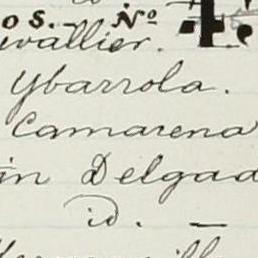 os. – Nº 4
vallier.
Ybarrola.
Camarena
in Delgad
id. —